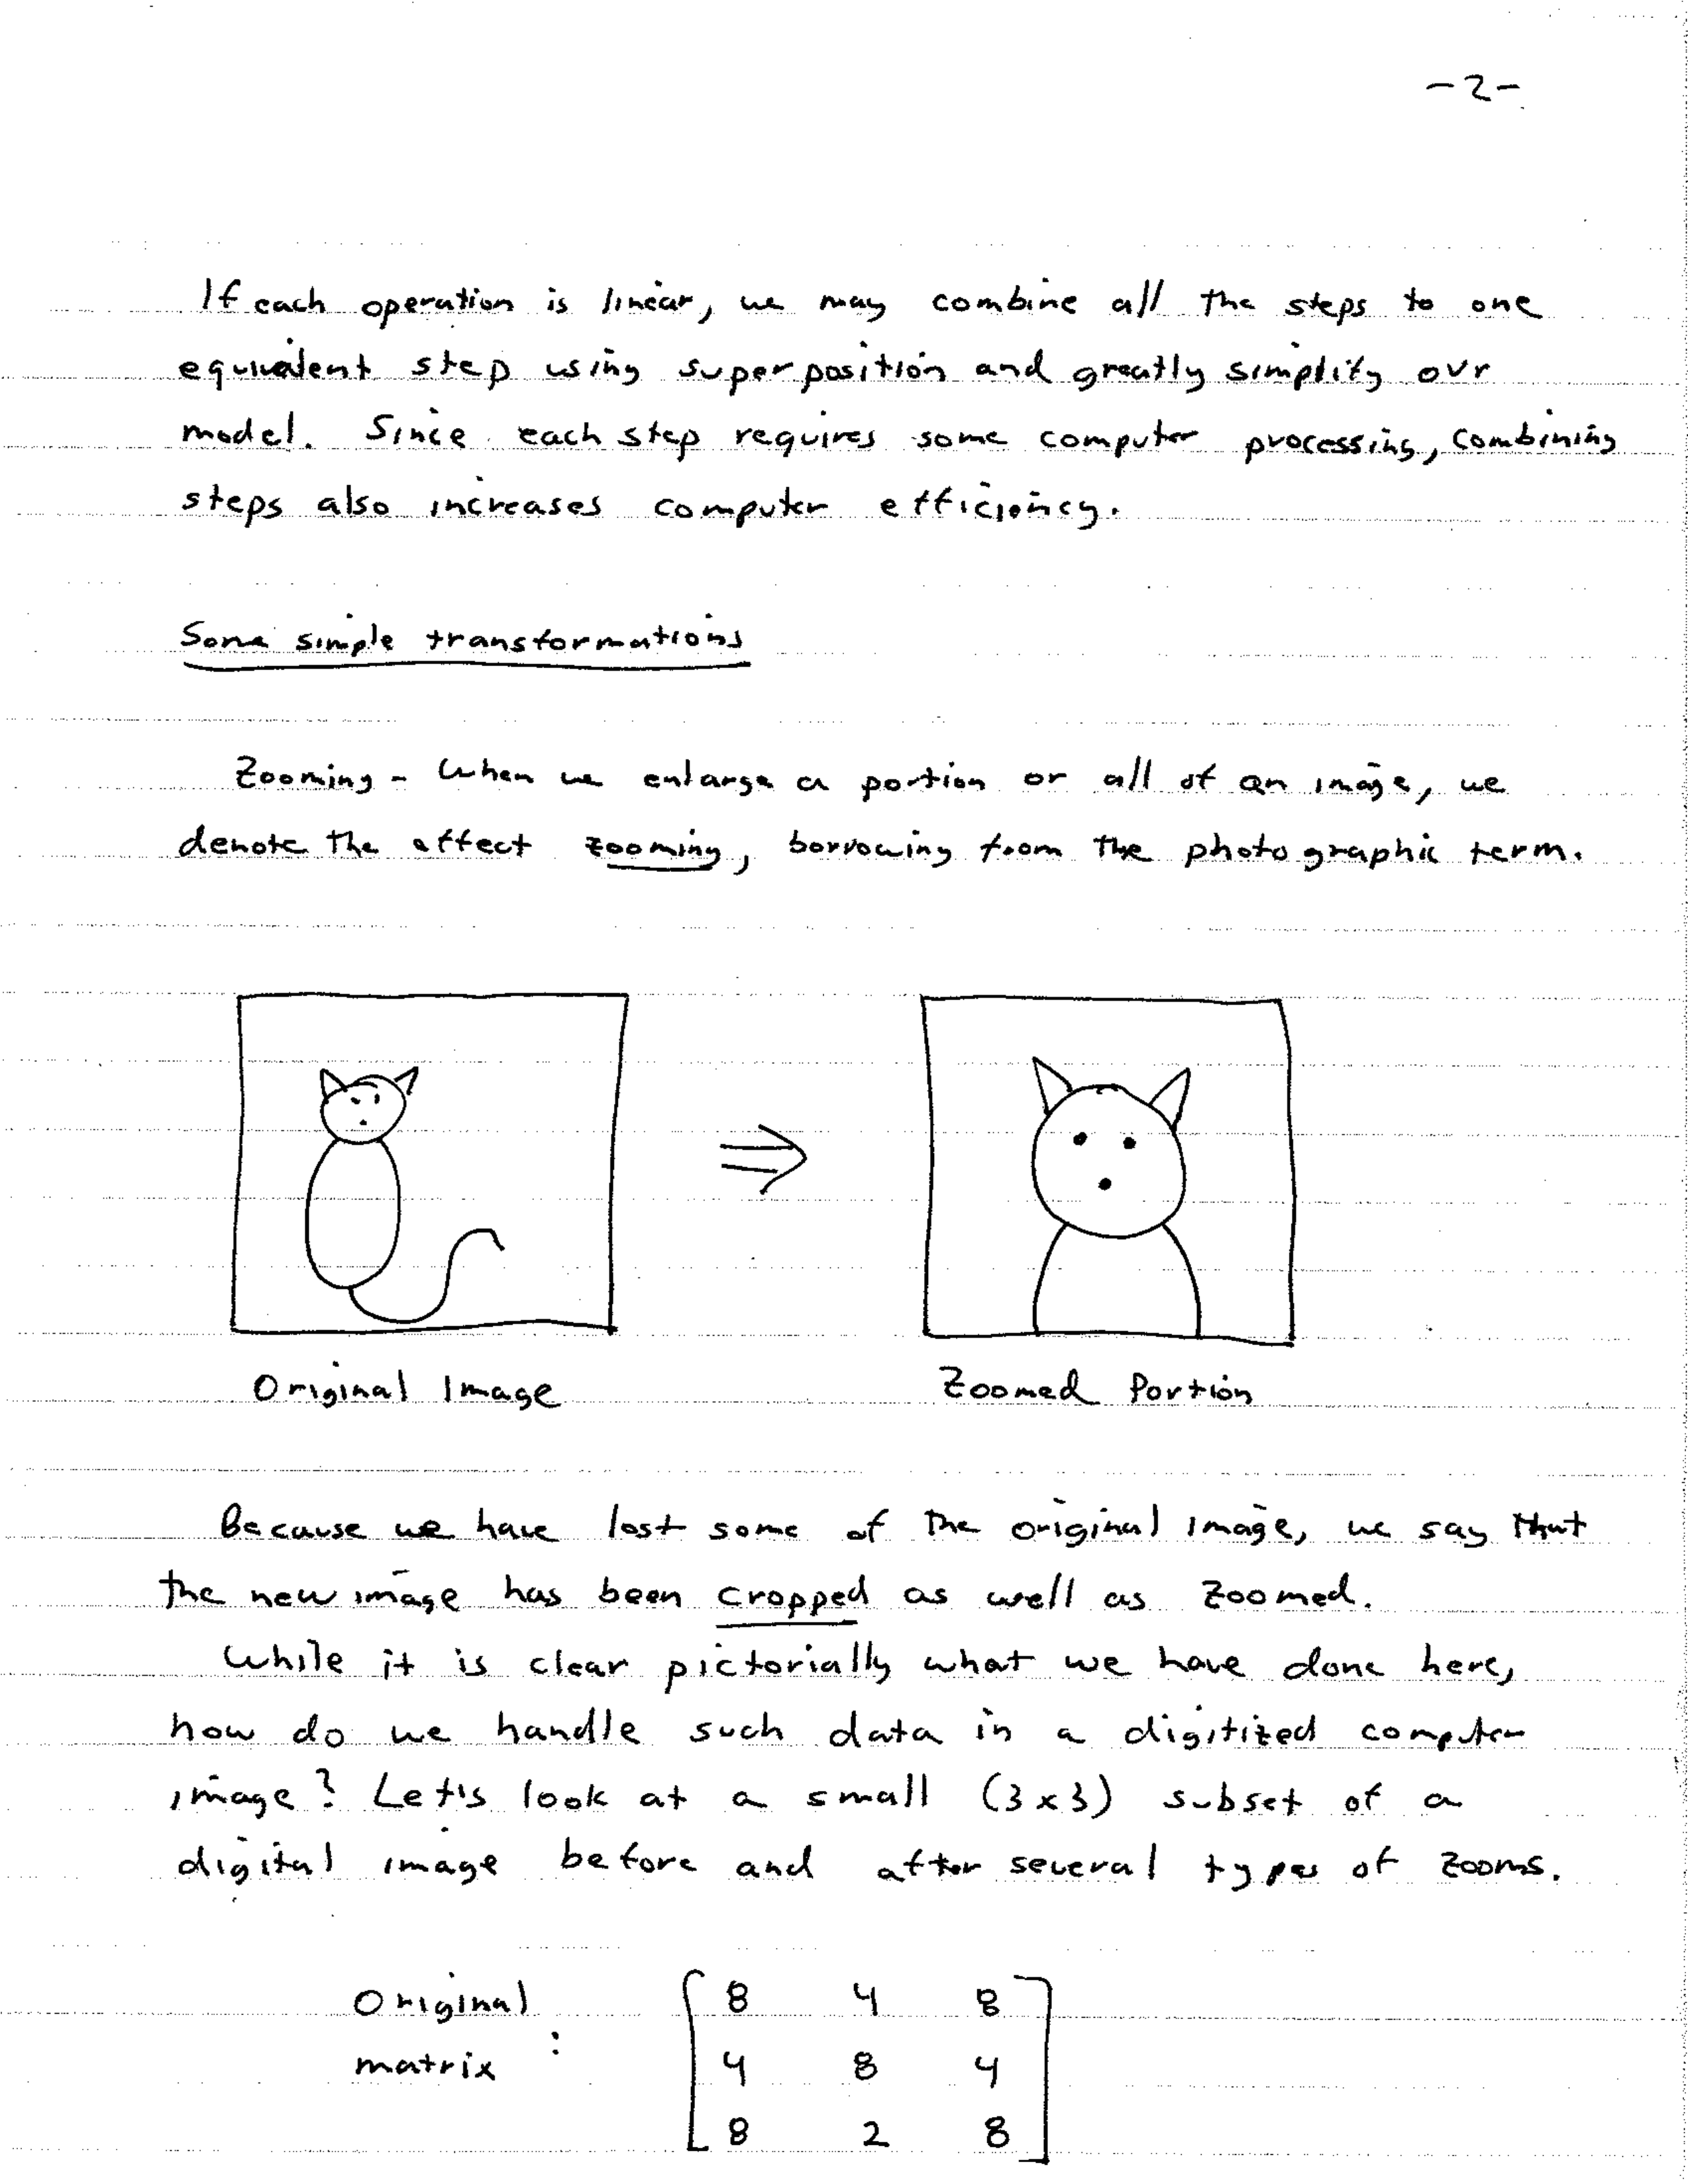 -2-
If each operation is linear, we may combine all the steps to one
equivalent step using superposition and greatly simplify our
model. Since each step requires some computer processing, combining
steps also increases computer efficiency.
Some simple transformations
Zooming - When we enlarge a portion or all of an image, we
denote the effect zooming, borrowing from the photographic term.
Original Image
Zoomed Portion
Because we have lost some of the original image, we say that
the new image has been cropped as well as zoomed.
While it is clear pictorially what we have done here,
how do we handle such data in a digitized computer
image? Let's look at a small (3x3) subset of a
digital image before and after several types of zooms.
Original
matrix :
8 4 8
4 8 4
8 2 8